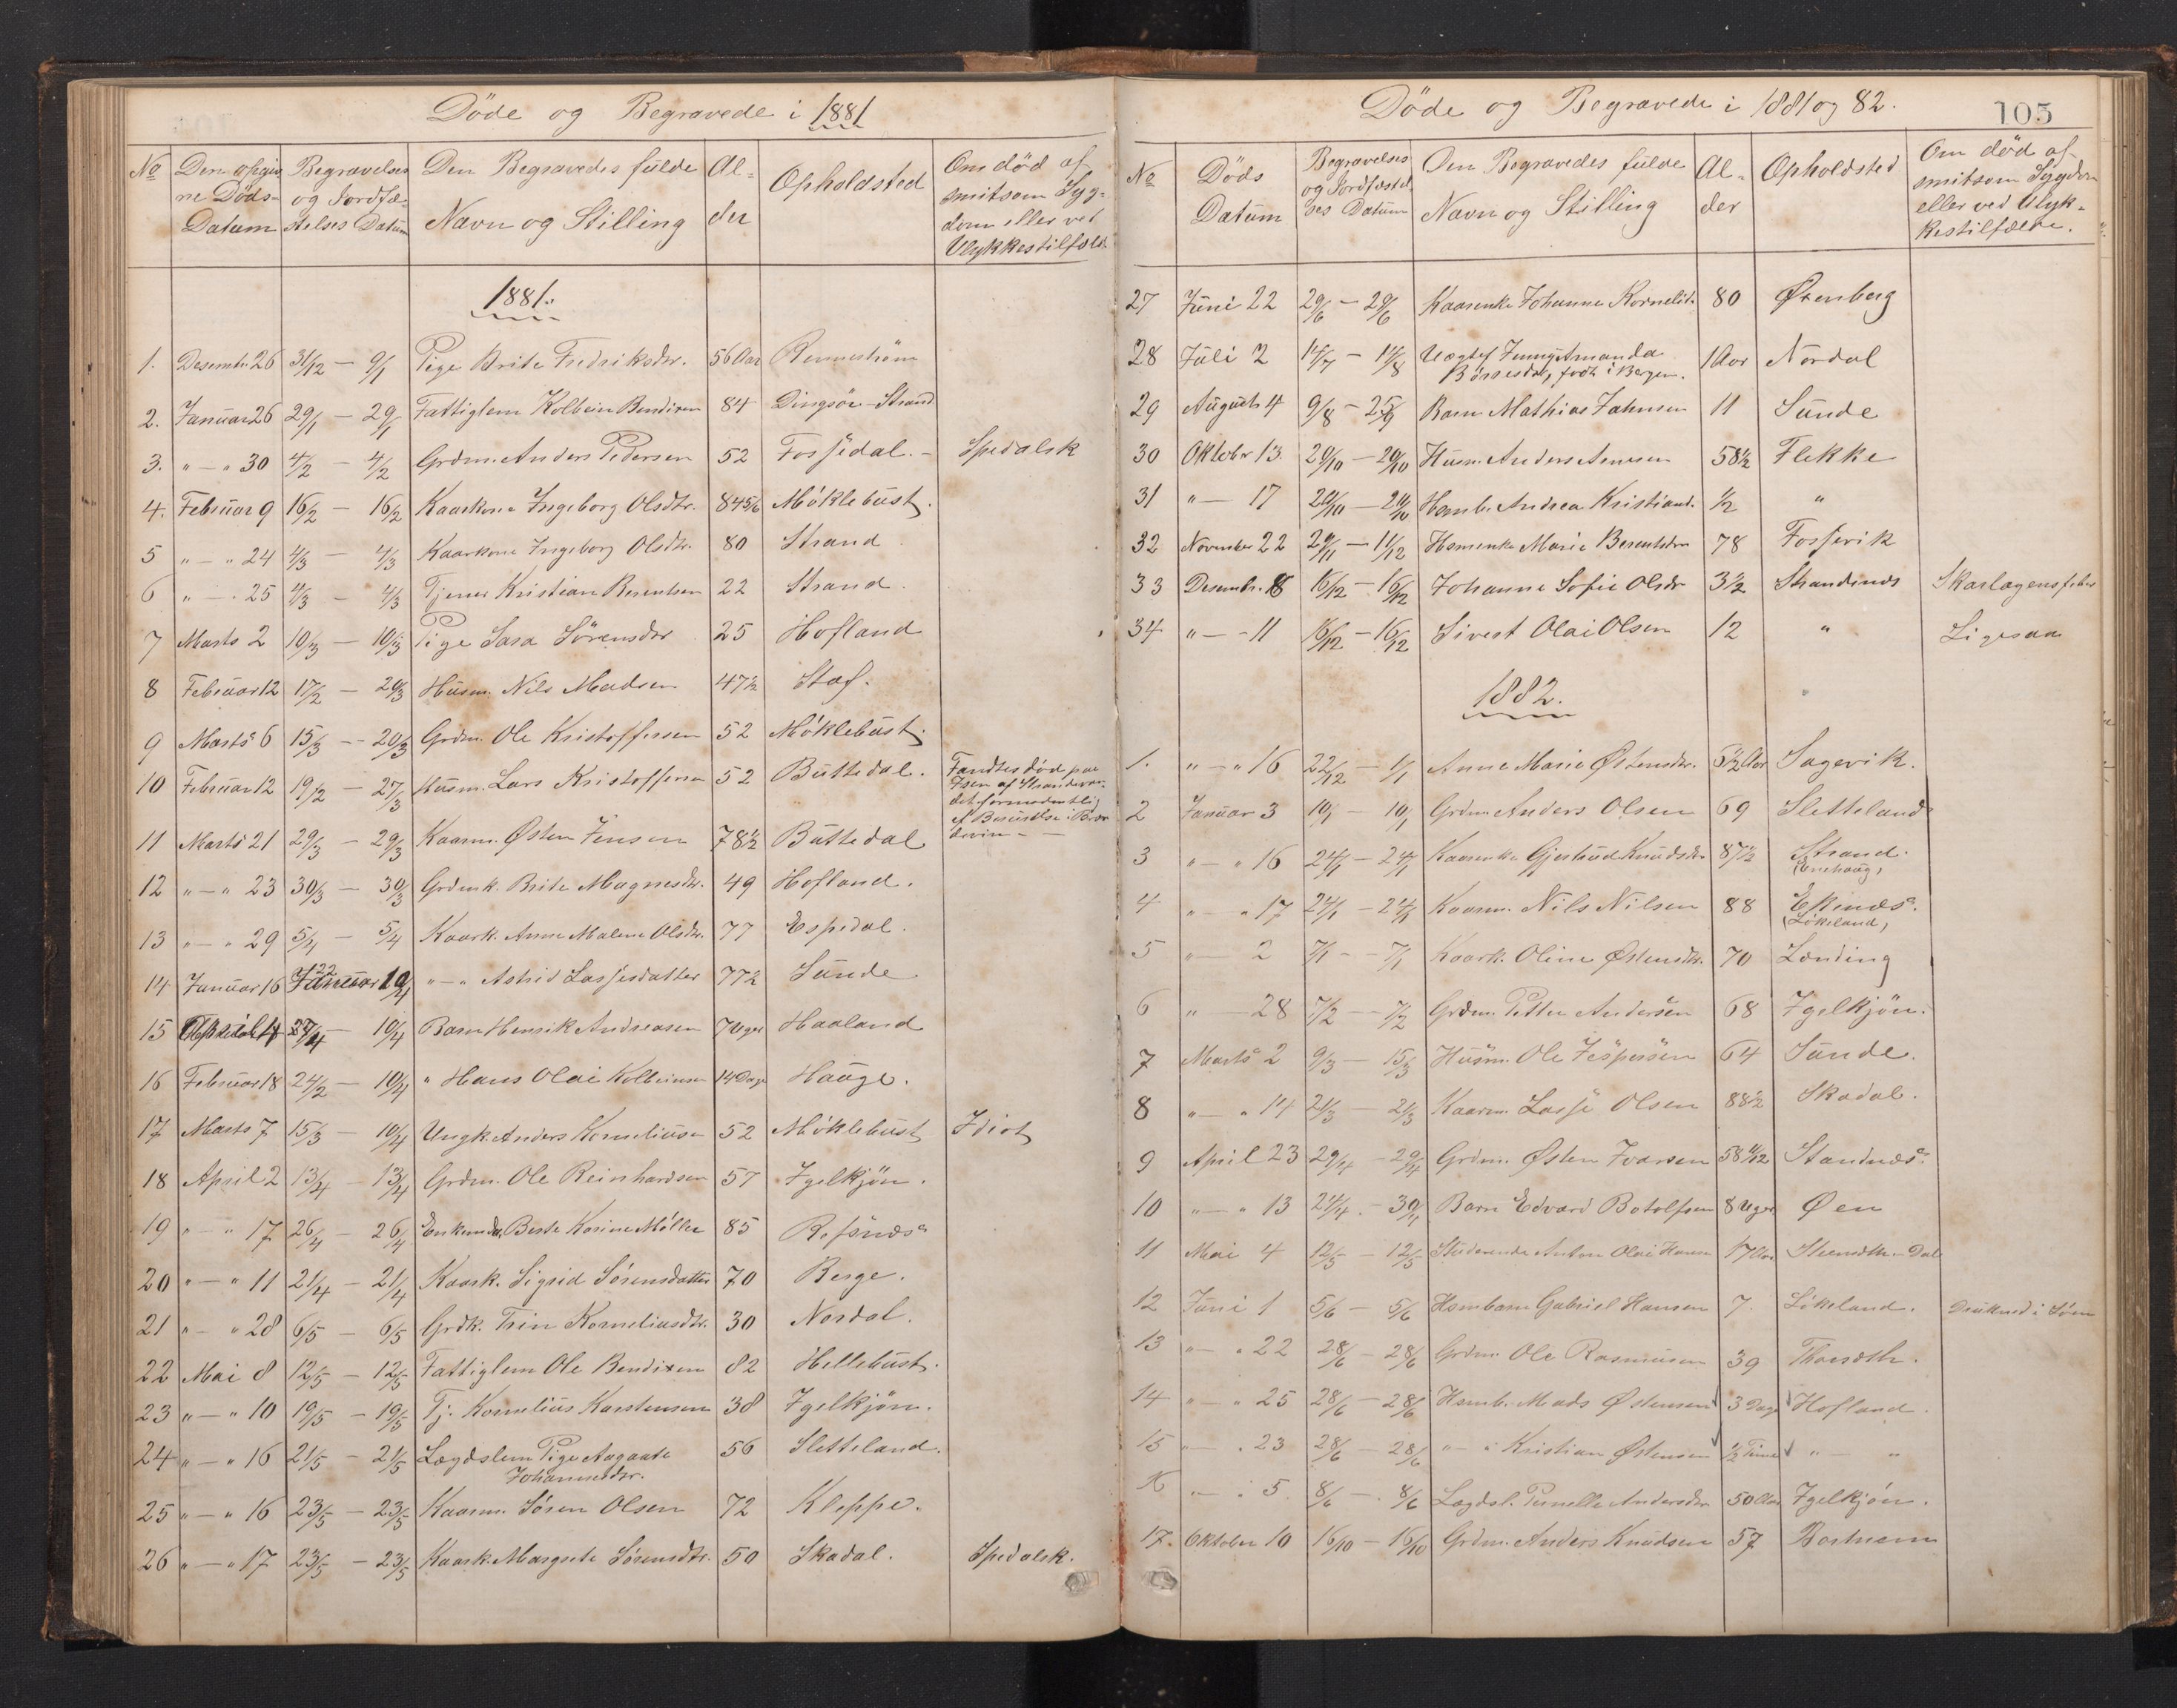 Döde og Begravede i 1881
No Den opgivne Döds-Datum Begravelses og Jordfæstelses Datum Den Begravedes fulde Navn og Stilling Alder Opholdsted Om död af smitsom Sygdom eller ved Ulykkestilfælde
1881.
1. Desembr. 26 31/12 — 9/1 Pige Brite Fredriksdtr. 56 Aar Rennestrøm
2. Januar 26 29/1 — 29/1 Fattiglem Kolbein Bendixen 84 Dingsör - Strand
3. " — " 30 4/2 — 4/2 Grdm. Anders Pedersen 52 Fossedal. — Spedalsk
4. Februar 9 16/2 — 16/2 Kaarkone Ingeborg Olsdtr. 84 5/6 Möklebust.
5 " — " 24 4/3 — 4/3 Kaarkone Ingeborg Olsdtr. 80 Strand
6 " — " 25 4/3 — 4/3 Tjener Kristian Berentsen 22 Strand.
7 Marts 2 10/3 — 10/3 Pige Sara Sörensdtr 25 Hofland
8 Februar 12 17/2 — 20/3 Husm. Nils Madsen 47 1/2 Staf.
9 Marts 6 15/3 — 20/3 Grdm. Ole Kristoffersen 52 Möklebust.
10 Februar 12 19/2 — 27/3 Husm. Lars Kristoffersen 52 Buttedal. Fandtes död paa Isen af
11 Marts 21 29/3 — 29/3 Kaarm. Østen Jensen 78 1/2 Buttedal
12 " — " 23 30/3 — 30/3 Grdenk. Brite Magnesdtr. 49 Hofland.
13 " — " 29 5/4 — 5/4 Kaark. Anne Malene Olsdtr. 77 Espedal.
14 Januar 16 Januar 22 10/4 " — " Astrid Lassesdatter 77 1/2 Sunde
15 10/4 Barn Henrik Andreasen 7 Uger Haaland
16 Februar 18 24/2 — 10/4 " Hans Olai Kolbeinsen 14 Dage Hauge.
17 Marts 7 15/3 — 10/4 Ungk. Anders Korneliusen 52 Möklebust Idiot
18 April 2 13/4 — 13/4 Grdm. Ole Reinhardsen 57 Igelkjön.
19 " — " 17 26/4 — 26/4 Beate Karine Möller 85 Refsnæs
20 " — " 11 21/4 — 21/4 Kaark. Sigrid Sörensdatter 70 Berge.
21 " — " 28 6/5 — 6/5 Grdk. Trin Korneliusdtr. 30 Nordal.
22 Mai 8 12/5 — 12/5 Fattiglem Ole Bendixen 82 Hellebust.
23 " — " 10 19/5 — 19/5 Tj. Kornelius Karstensen 38 Igelkjön.
24 " — " 16 21/5 — 21/5 Lægdslem Pige Aagaate Johannesdtr. 56 Sletteland.
25 " — " 16 23/5 — 23/5 Kaarm. Sören Olsen 72 Kleppe.
26 " — " 17 23/5 — 23/5 Kaark. Margrete Sörensdtr. 50 Skadal. Spedalsk.
Döde og Begravede i 1881 og 82.
105
No Döds Datum Begravelses og Jordfæstelses Datum Den Begravedes fulde Navn og Stilling Alder Opholdsted Om död af smitsom Sygdom eller ved Ulykkestilfælde.
27 Juni 22 29/6 — 29/6 Kaarenke Johanne Kornelidtr. 80 Øxenberg
28 Juli 2 14/7 — 14/8 Uægtef Jenny Amanda Börresdal, födt i Bergen. 1 Aar Nordal
29 August 4 9/8 — 25/9 Barn Mathias Johnsen 11 Sunde
30 Oktober 13 20/10 — 20/10 Husm. Anders Arnesen 58 1/2 Flekke
31 " — 17 Hsmb. Andrea Kristiansd. 1/2 "
32 November 22 29/11 — 11/12 Hsmenke Marie Berentsdtr 78 Fossevik
33 Desembr. 8 16/12 — 16/12 Johanne Sofie Olsdr 3 1/2 Strandenæs Skarlagensfeber
34 " — " 11 16/12 — 16/12 Sivert Olai Olsen 12 " Ligesaa
1882.
1. " — " 16 22/12 — 1/1 Anne Marie Østensdtr. 6 1/2 Aar Sagevik.
2 Januar 3 10/1 — 10/1 Grdm. Anders Olsen 69 Sletteland
3 " — " 16 24/1 — 24/1 Kaarenke Gjertrud Knudsdtr 87 1/2 Strand. (Enehaug)
4 " — " 17 24/1 — 24/1 Kaarm. Nils Nilsen 88 Ekenæs. (Lökeland)
5 " — 2 7/1 — 7/1 Kaark. Oline Østensdtr. 70 Lending
6 " — 28 7/2 — 7/2 Grdm. Petter Andersen 68 Igelkjön.
7 Marts 2 9/3 — 15/3 Husm. Ole Jespersen 64 Sunde.
8 " — " 14 21/3 — 21/3 Kaarm. Lasse Olsen 88 1/2 Skadal.
9 April 23 29/4 — 29/4 Grdm. Østen Ivarsen 58 11/12 Standnæs.
10 " — " 13 24/4 — Barn Edvard Botolfsen 8 Uger Øen
11 Mai 4 12/5 — 12/5 Studerende Anton Olai Hansen 17 Aar Steendtr. Dal
12 Juni 1 5/6 — 5/6 Hsmbarn Gabriel Hansen 7. Lökeland. Druknet i Søen
13 " — " 22 28/6 — 28/6 Grdm. Ole Rasmusen 39
14 " — " 25 28/6 — 28/6 Hsmb. Mads Østensen 3 Dage Hofland.
15 " — " 23 28/6 — 28/6 " — " Kristian Østensen 1/2 Time " — "
16 " — " 5 8/6 — 8/6 Lægdsl. Pernelle Andersdtr 50 Aar Igelkjön.
17. Oktober 10 16/10 — 16/10 Grdm. Anders Knudsen 57 Bortnem